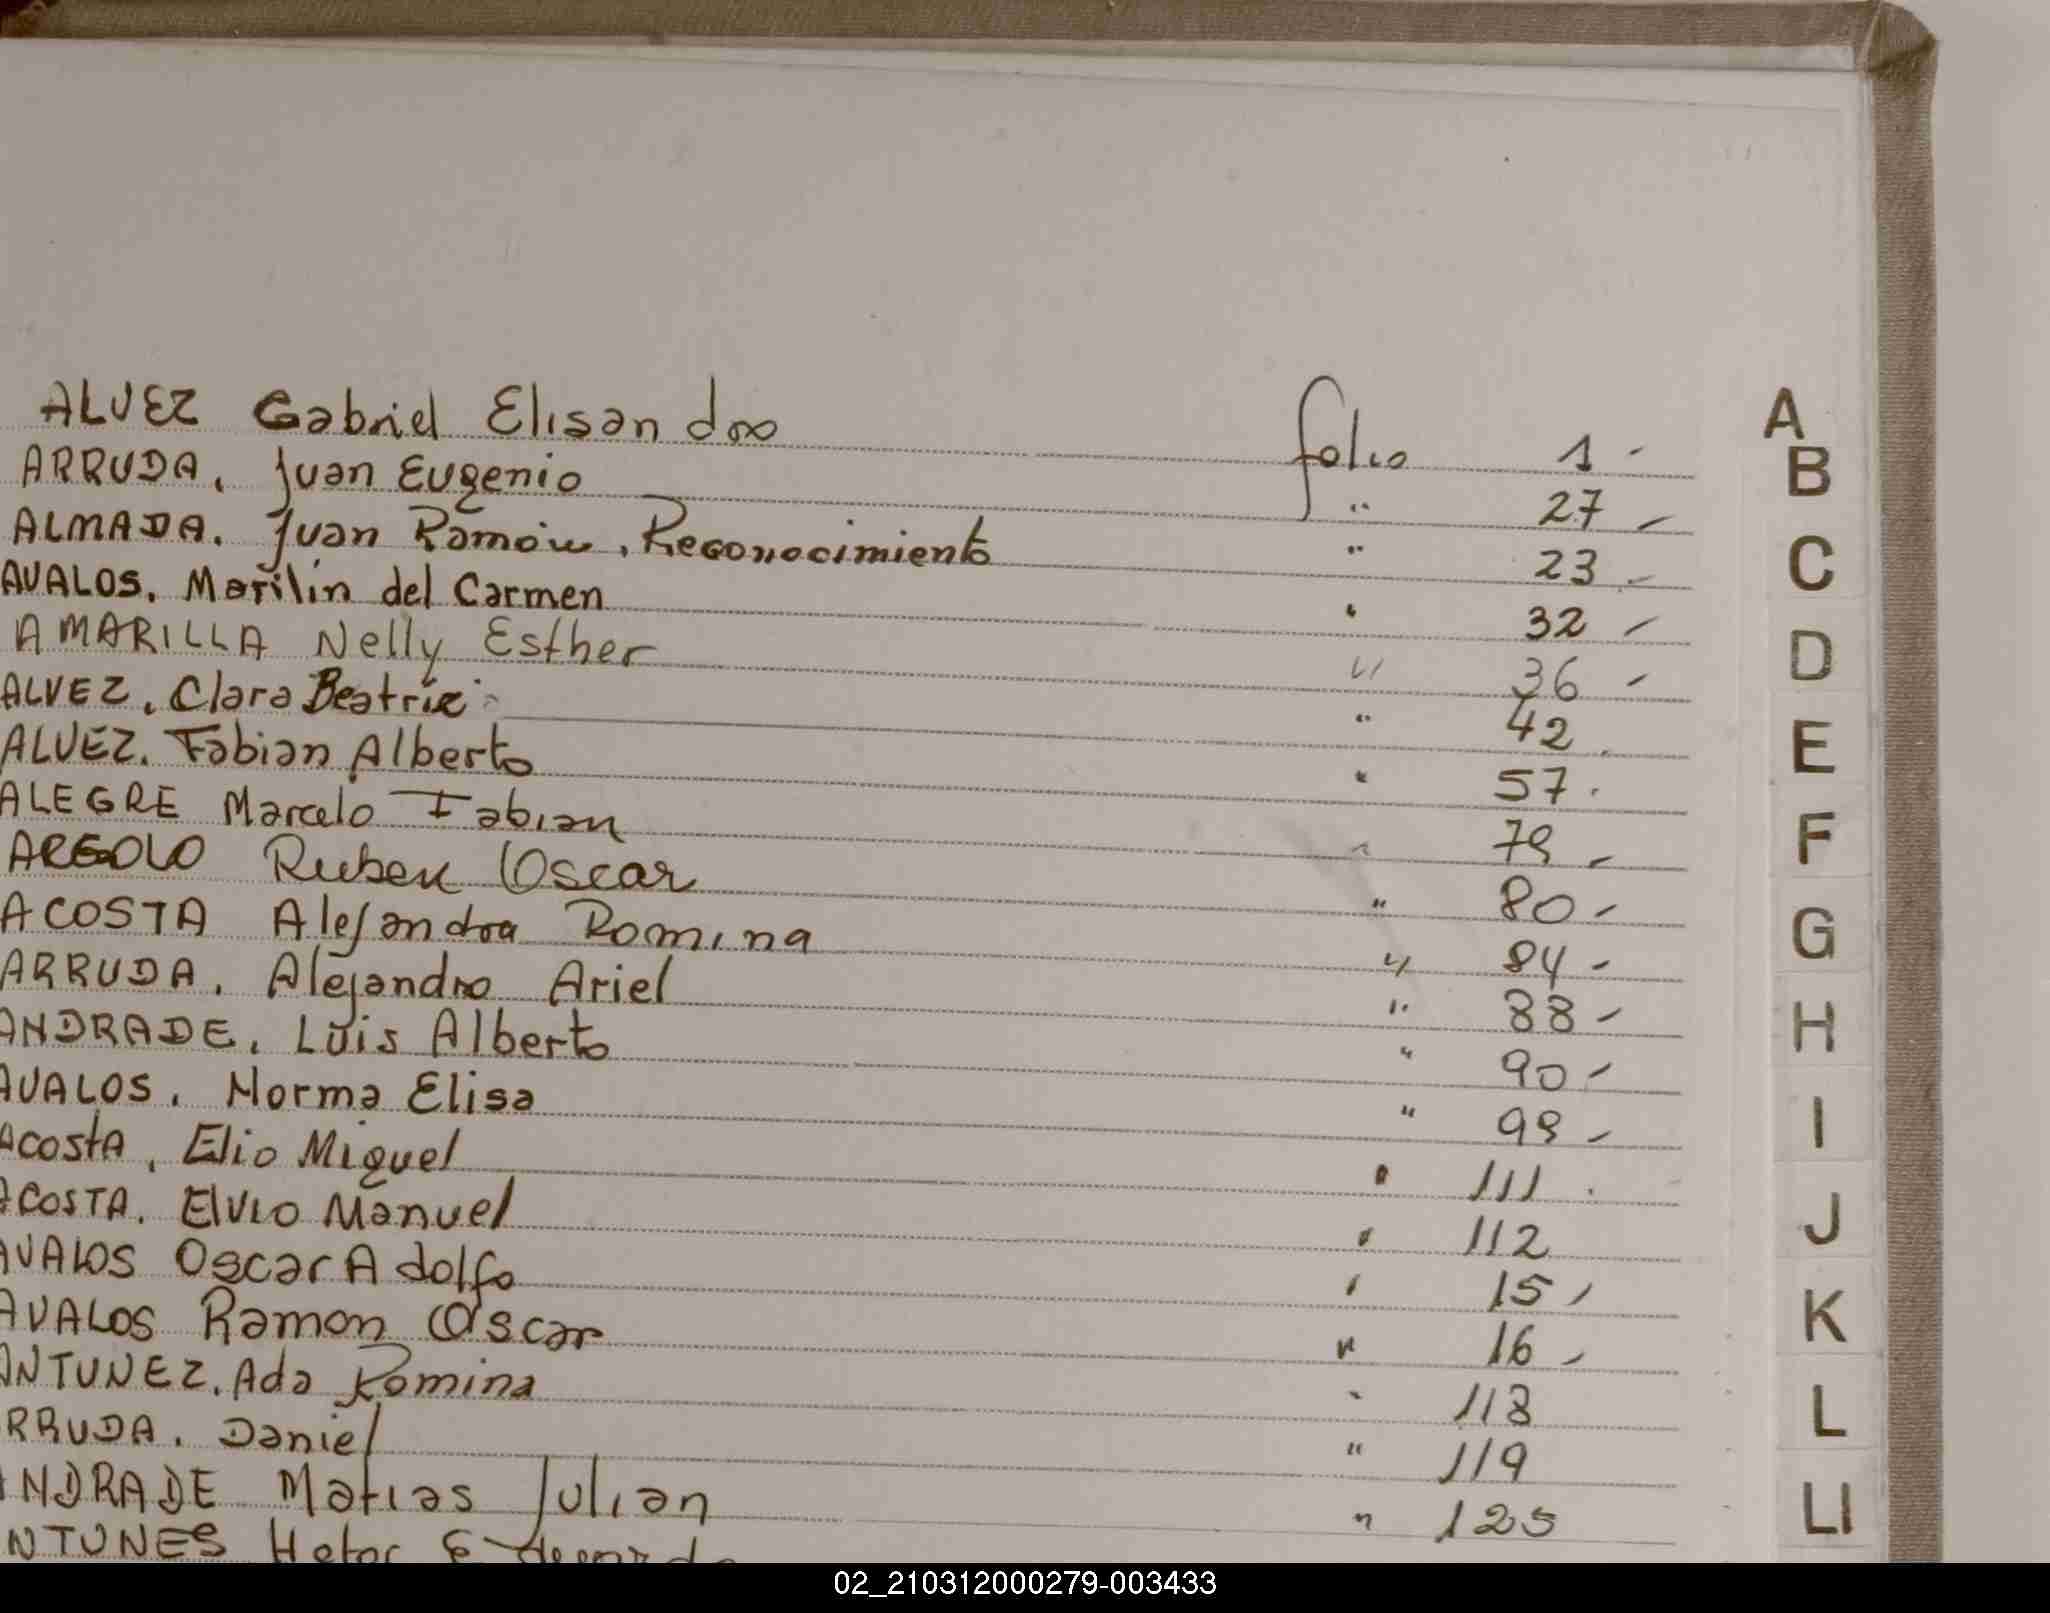 ALVEZ Gabriel Elisandro folio 1 -
ARRUDA, Juan Eugenio " 27 -
ALMADA. Juan Ramón, Reconocimiento " 23 -
AVALOS, Marilin del Carmen " 32 -
AMARILLA Nelly Esther " 36 -
ALVEZ, Clara Beatriz " 42 .
ALVEZ. Fabian Alberto " 57 .
ALEGRE Marcelo Fabian " 79 -
ARGOLO Ruben Oscar " 80 -
ACOSTA Alejandra Romina " 84 -
ARRUDA, Alejandro Ariel " 88 -
ANDRADE, Luis Alberto " 90 -
AVALOS, Norma Elisa " 99 -
ACOSTA, Elio Miguel " 111 .
ACOSTA, Elvio Manuel " 112
AVALOS Oscar Adolfo " 15 -
AVALOS Ramon Oscar " 16 -
ANTUNEZ, Ada Romina " 118
RRUDA, Daniel " 119
NDRADE Matias Julian " 125
NTUNES
A
B
C
D
E
F
G
H
I
J
K
L
Ll
02_210312000279-003433